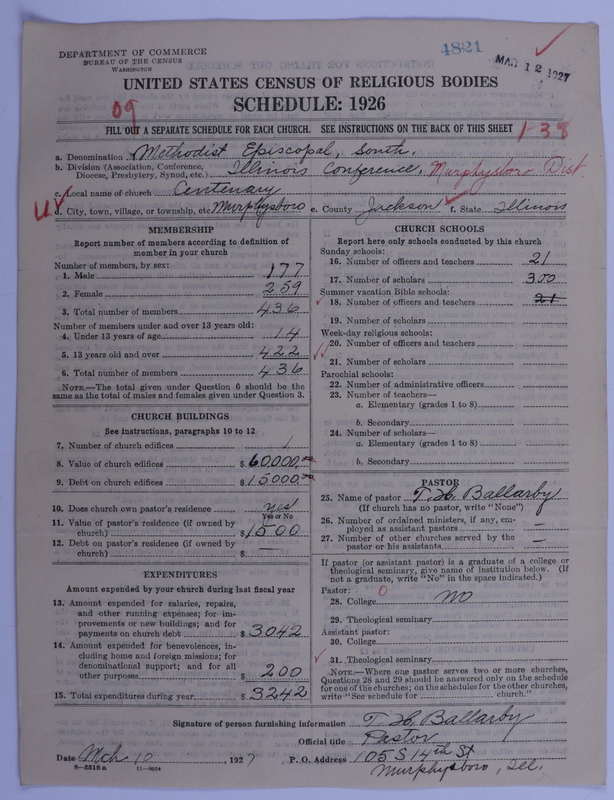 DEPARTMENT OF COMMERCE
BUREAU OF THE CENSUS
WASHINGTON
4821
MAR 12 1927
UNITED STATES CENSUS OF RELIGIOUS BODIES
SCHEDULE: 1926
09
FILL OUT A SEPARATE SCHEDULE FOR EACH CHURCH. SEE INSTRUCTIONS ON THE BACK OF THIS SHEET
1-38
a. Denomination Methodist Episcopal, South.
b. Division (Association, Conference, Diocese, Presbytery, Synod, etc.) Illinois Conference, Murphysboro Dist
c. Local name of church Centenary
d. City, town, village, or township, etc. Murphysboro e. County Jackson f. State Illinois
MEMBERSHIP
Report number of members according to definition of
member in your church
Number of members, by sex:
1. Male 177
2. Female 259
3. Total number of members 436
Number of members under and over 13 years old:
4. Under 13 years of age 14
5. 13 years old and over 422
6. Total number of members 436
NOTE.—The total given under Question 6 should be the
same as the total of males and females given under Question 3.
CHURCH BUILDINGS
See instructions, paragraphs 10 to 12
7. Number of church edifices 1
8. Value of church edifices $60,000.00
9. Debt on church edifices $15000.00
10. Does church own pastor's residence yes
Yes or No
11. Value of pastor's residence (if owned by
church) $1500
12. Debt on pastor's residence (if owned by
church) $ —
EXPENDITURES
Amount expended by your church during last fiscal year
13. Amount expended for salaries, repairs,
and other running expenses; for im-
provements or new buildings; and for
payments on church debt $3042
14. Amount expended for benevolences, in-
cluding home and foreign missions; for
denominational support; and for all
other purposes $200
15. Total expenditures during year $3242
CHURCH SCHOOLS
Report here only schools conducted by this church
Sunday schools:
16. Number of officers and teachers 21
17. Number of scholars 300
Summer vacation Bible schools:
18. Number of officers and teachers 21
19. Number of scholars
Week-day religious schools:
20. Number of officers and teachers
21. Number of scholars
Parochial schools:
22. Number of administrative officers
23. Number of teachers—
a. Elementary (grades 1 to 8)
b. Secondary
24. Number of scholars—
a. Elementary (grades 1 to 8)
b. Secondary
PASTOR
25. Name of pastor T. H. Ballarby
(If church has no pastor, write "None")
26. Number of ordained ministers, if any, em-
ployed as assistant pastors —
27. Number of other churches served by the
pastor or his assistants —
If pastor (or assistant pastor) is a graduate of a college or
theological seminary, give name of institution below. (If
not a graduate, write "No" in the space indicated.)
Pastor: 0
28. College no
29. Theological seminary
Assistant pastor:
30. College
31. Theological seminary
NOTE.—Where one pastor serves two or more churches,
Questions 28 and 29 should be answered only on the schedule
for one of the churches; on the schedules for the other churches,
write "See schedule for church."
Signature of person furnishing information T. H. Ballarby
Official title Pastor
Date Mch 10, 1927 P. O. Address 105 S 14th St
Murphysboro, Ill.
8-5518a 11-9024